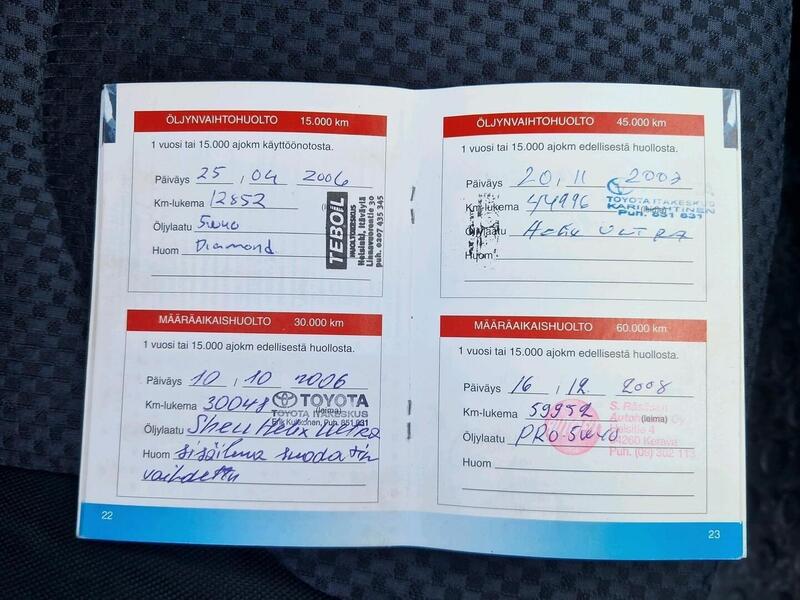 ÖLJYNVAIHTOHUOLTO 15.000 km
1 vuosi tai 15.000 ajokm käyttöönotosta.
Päiväys 25 . 04 2006
Km-lukema 12852
Öljylaatu 5w40
Huom Diamond
TEBOIL
HUOLTOKESKUS
Helsinki, Itäväylä
Linnavuorentie 30
puh. 0207 435 345
MÄÄRÄAIKAISHUOLTO 30.000 km
1 vuosi tai 15.000 ajokm edellisestä huollosta.
Päiväys 10 . 10 2006
Km-lukema 30048
TOYOTA
(leima)
TOYOTA ITÄKESKUS
Puh. 851 031
Öljylaatu Shell Helix Ultra
Huom sisäilma suodatin
vaihdettu
22
ÖLJYNVAIHTOHUOLTO 45.000 km
1 vuosi tai 15.000 ajokm edellisestä huollosta.
Päiväys 20 . 11 2007
Km-lukema 44996
TOYOTA ITÄKESKUS
Puh. 851 031
Öljylaatu Helix ULTRA
Huom
MÄÄRÄAIKAISHUOLTO 60.000 km
1 vuosi tai 15.000 ajokm edellisestä huollosta.
Päiväys 16 . 12. 2008
Km-lukema 59952
S. Räsäsen
(leima) Oy
Öljylaatu PRO-5w40
04260 Kerava
Huom
Puh. (09) 302 113
23